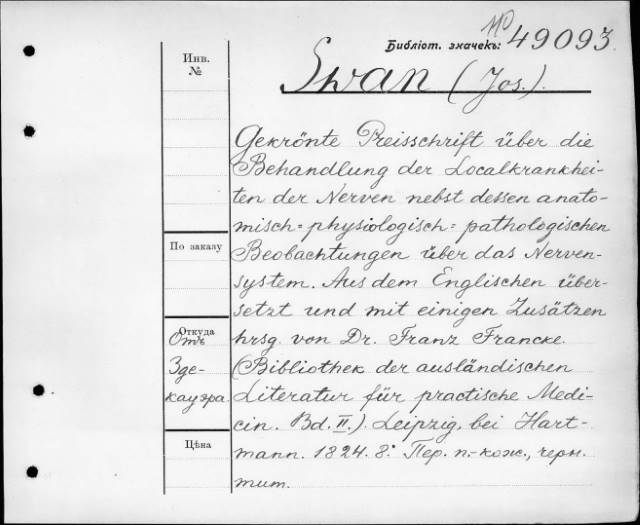 Библіот. значекъ: 49093.
Инв.
№
Swan (Jos.).
Gekrönte Preisschrift über die
Behandlung der Localkrankhei-
ten der Nerven nebst dessen anato-
misch-physiologisch-pathologischen
По заказу
Beobachtungen über das Nerven-
system. Aus dem Englischen über-
setzt und mit einigen Zusätzen
Откуда
Отъ
hrsg. von Dr. Franz Francke.
Зде-
(Bibliothek der ausländischen
кауэра.
Literatur für practische Medi-
cin. Bd. II.). Leipzig, bei Hart-
Цѣна
mann. 1824. 8.° Пер. п.-кож., черн.
тит.